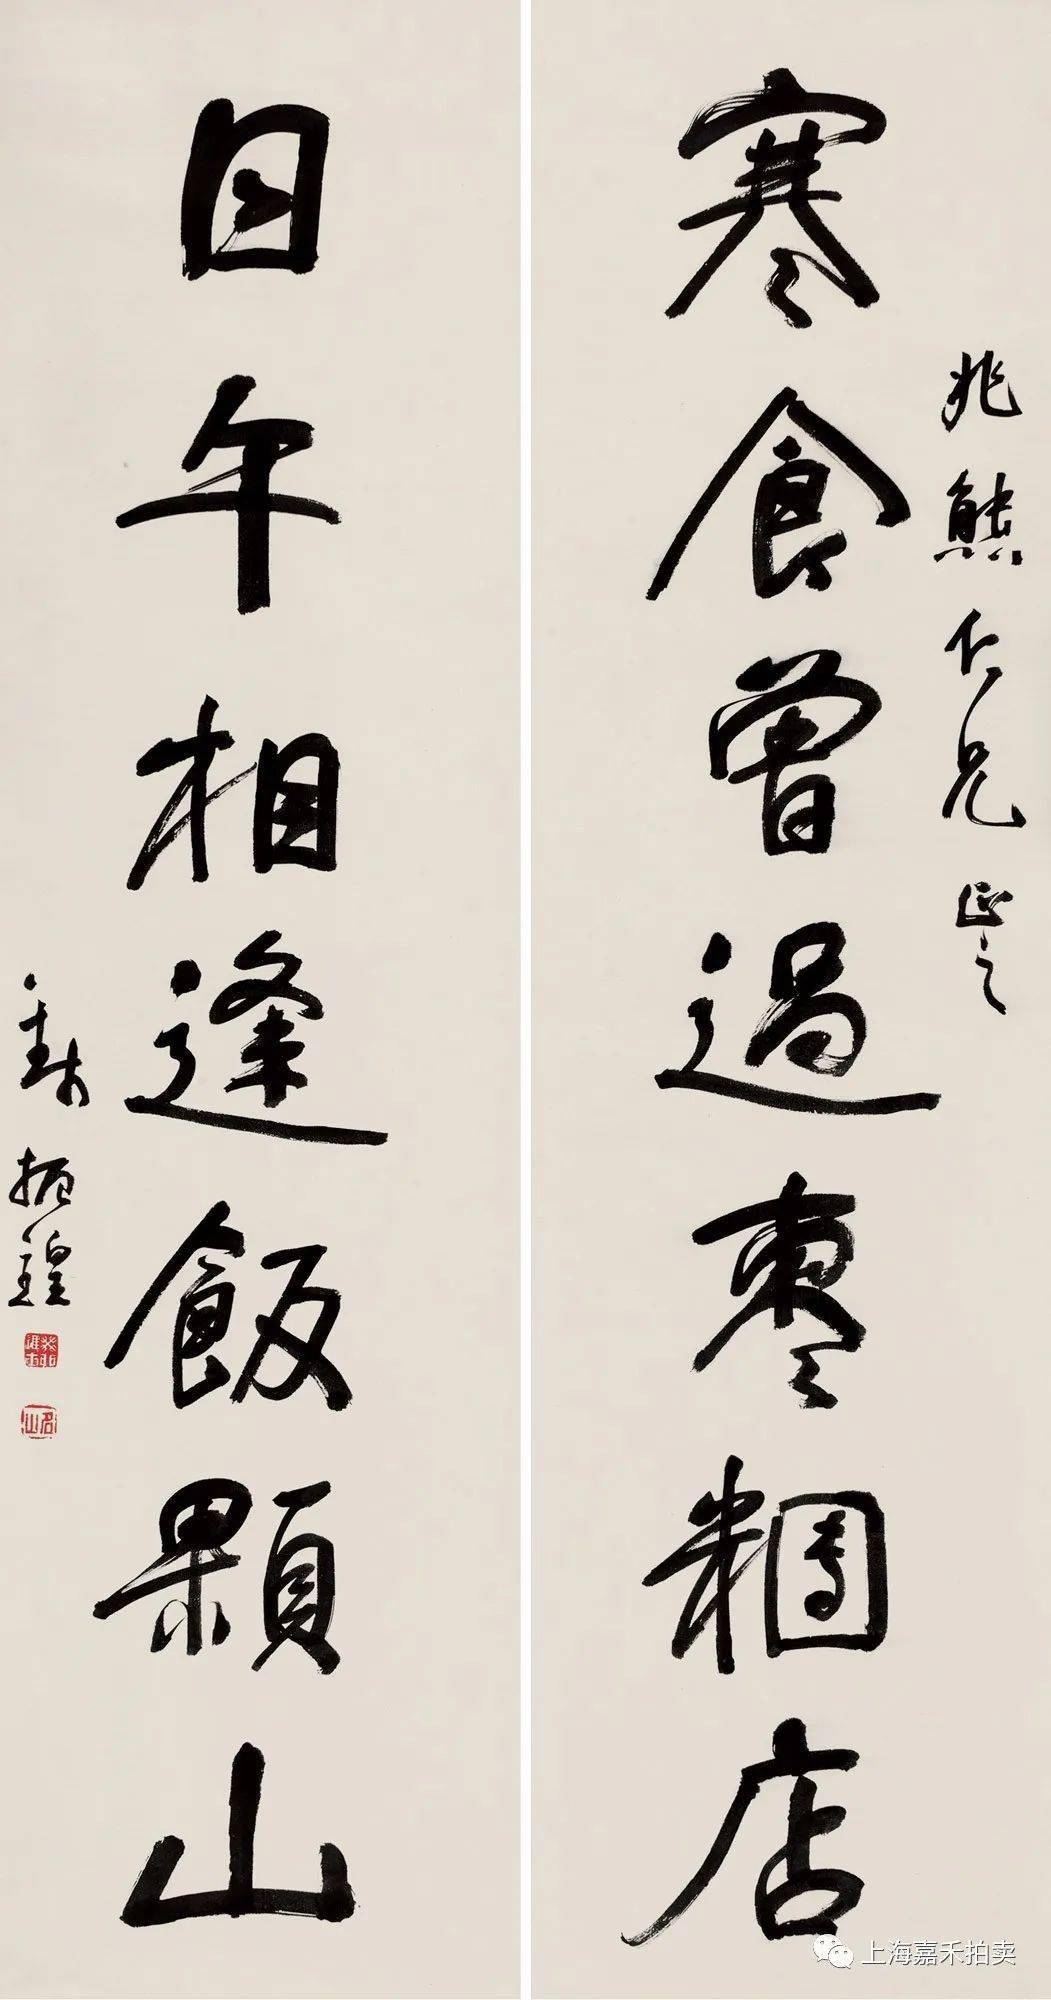 寒食曾過棗糰店
兆熊仁兄正之
日午相逢飯顆山
錢振鍠
名山
上海嘉禾拍卖